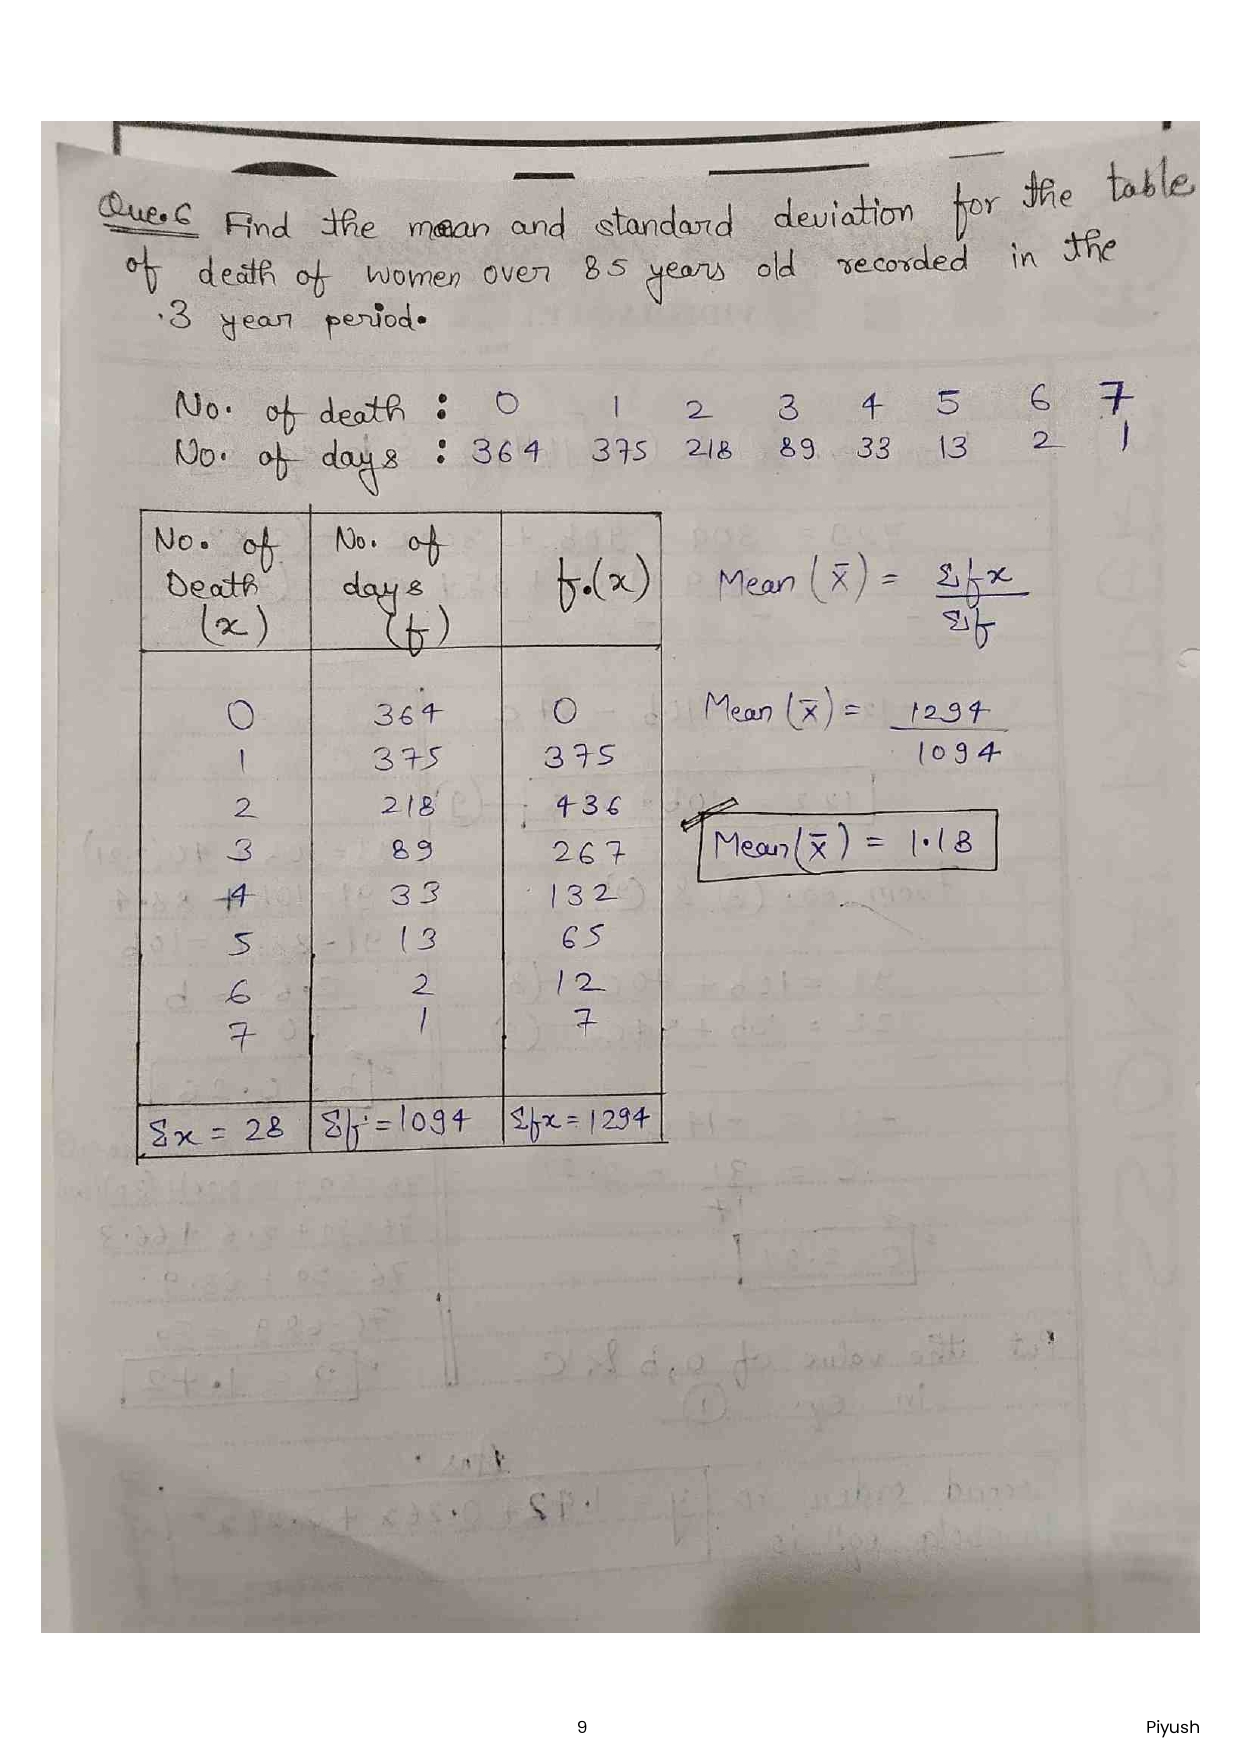 Que.6 Find the mean and standard deviation for the table
of death of women over 85 years old recorded in the
3 year period.
No. of death : 0 1 2 3 4 5 6 7
No. of days : 364 375 218 89 33 13 2 1
No. of Death (x) No. of days (f) f.(x)
0 364 0
1 375 375
2 218 436
3 89 267
4 33 132
5 13 65
6 2 12
7 1 7
Σx = 28 Σf = 1094 Σfx = 1294
Mean (x̄) = Σfx / Σf
Mean (x̄) = 1294 / 1094
Mean (x̄) = 1.18
9 Piyush